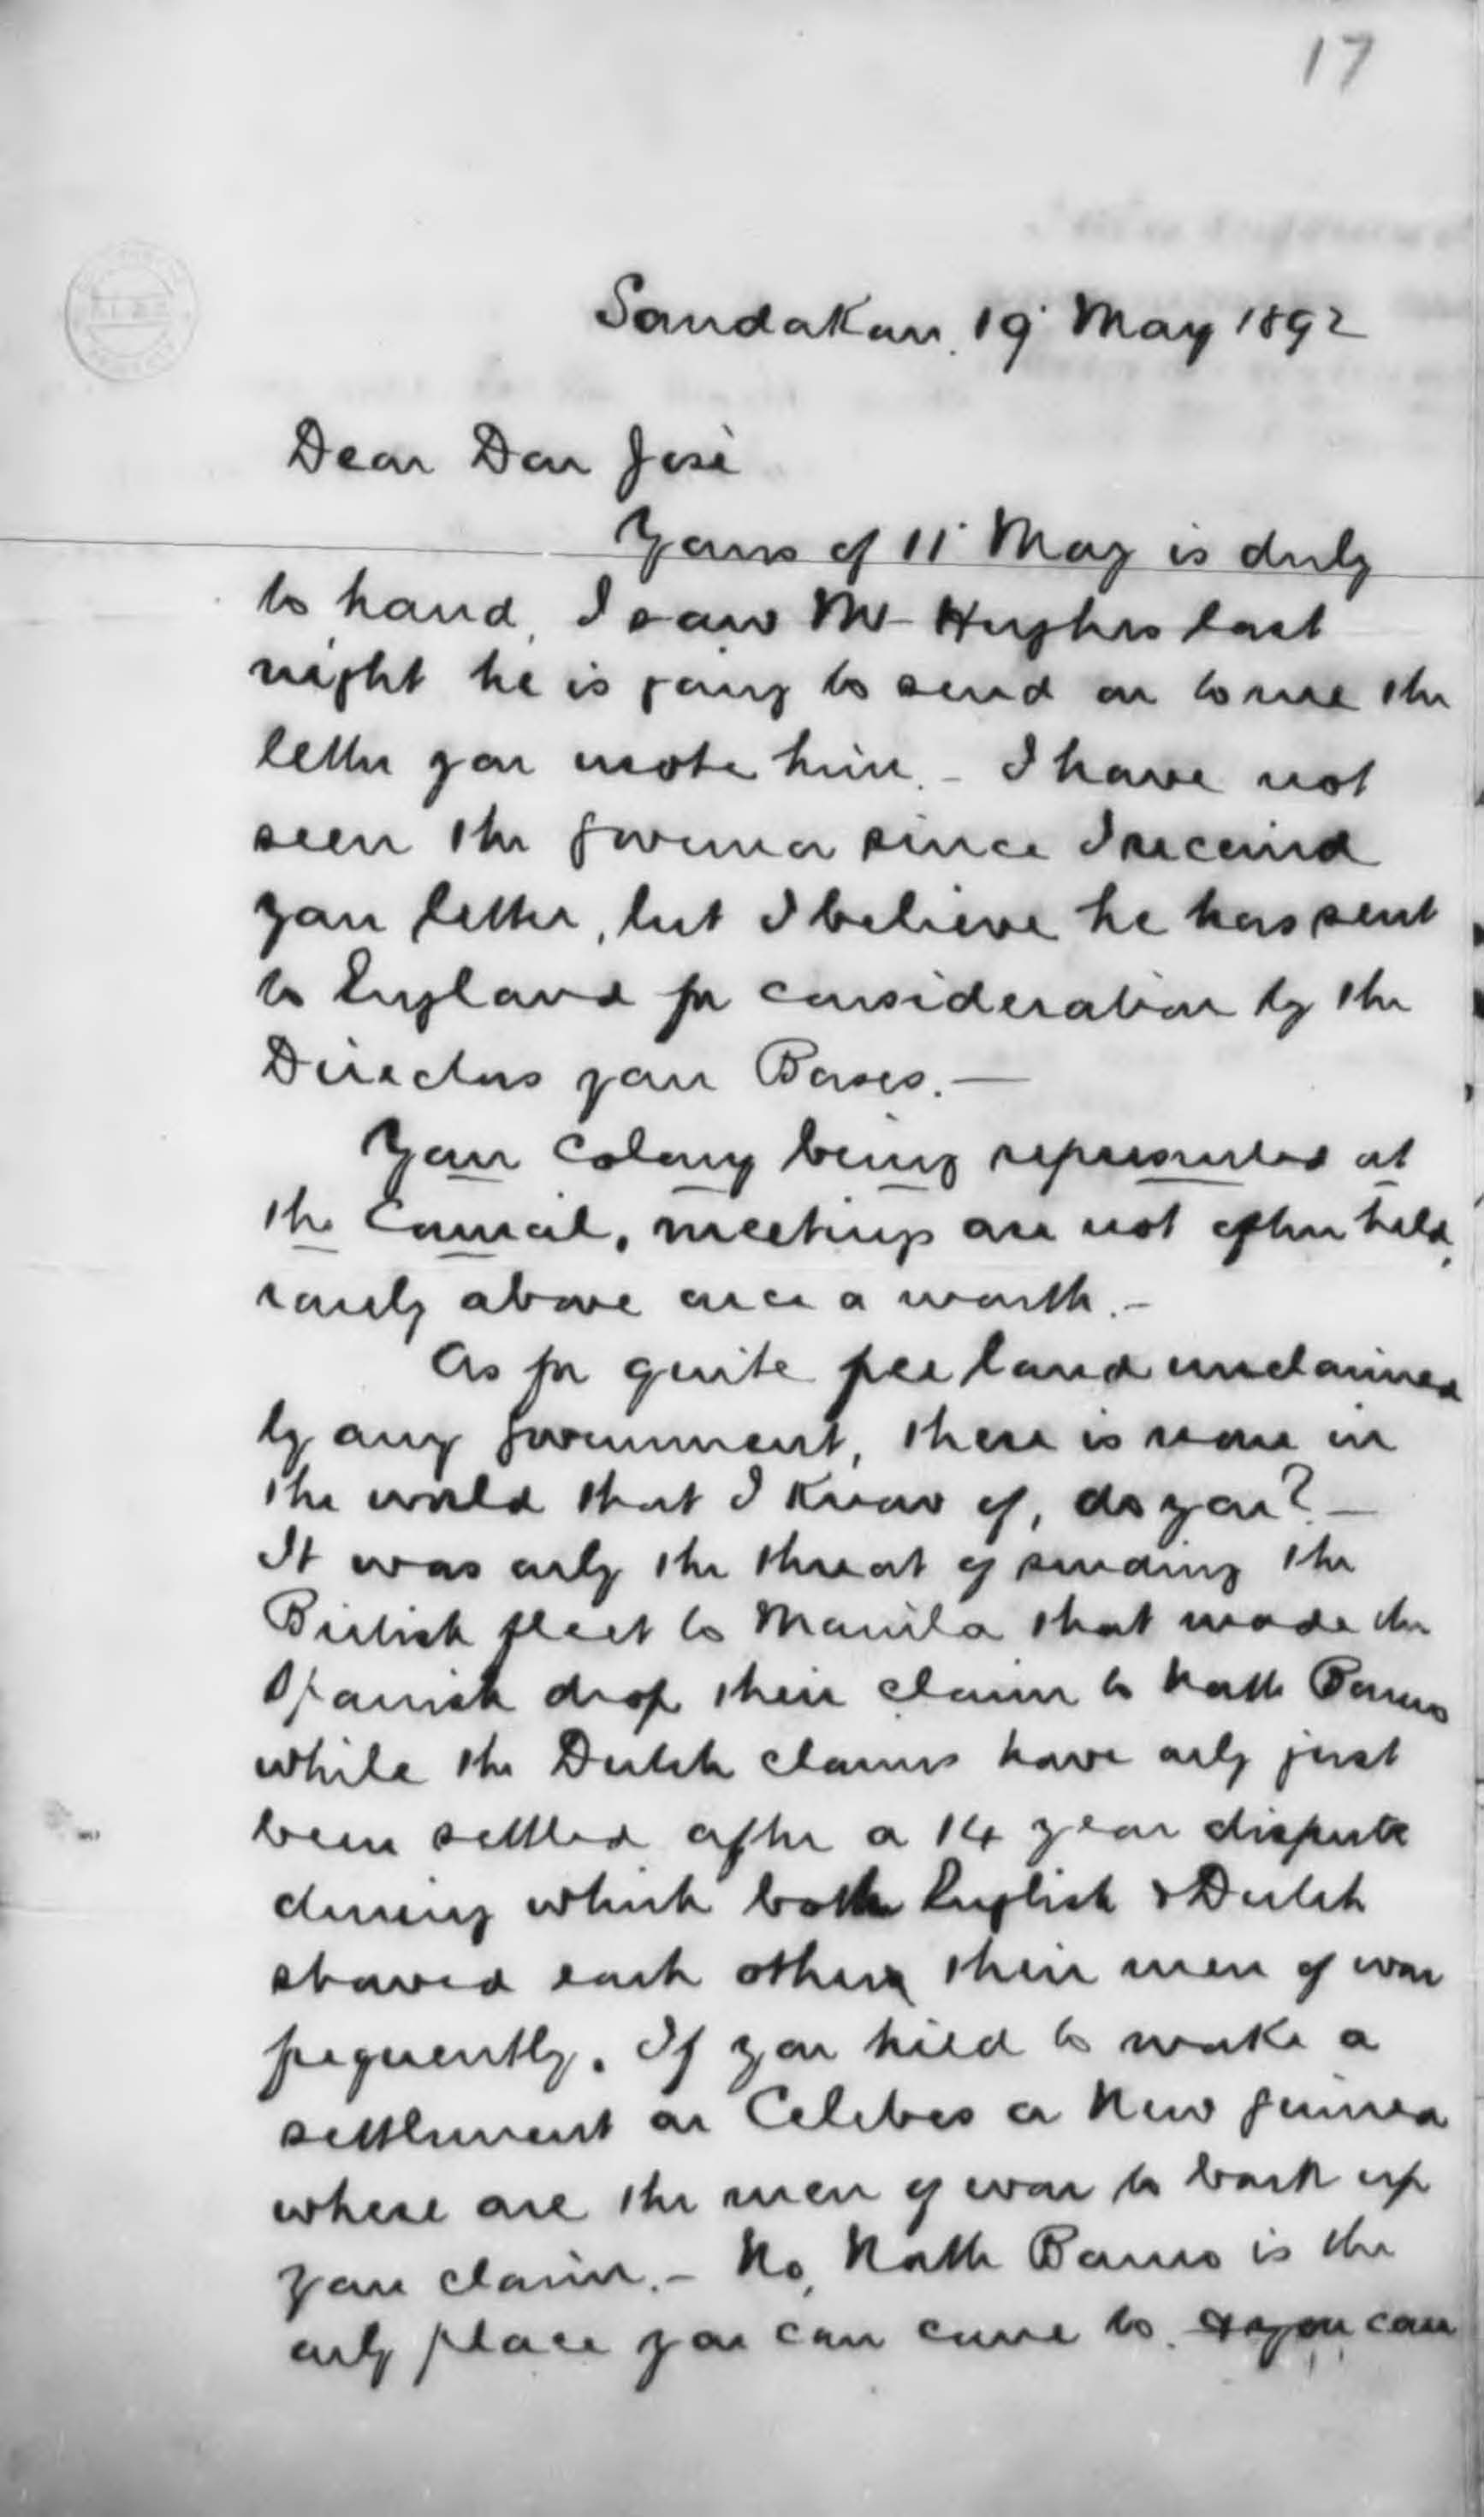 17
Sandakan. 19 May 1892
Dear Don José
Yours of 11 May is duly
to hand, I saw Mr Hughes last
night he is going to send on to me the
letter you wrote him. - I have not
seen the Governor since I received
your letter, but I believe he has sent
to England for consideration by the
Directors your Bases. —
Your Colony being represented at
the Council, meetings are not often held,
rarely above once a month. -
As for quite free land unclaimed
by any government, there is none in
the world that I know of, do you? —
It was only the threat of sending the
British fleet to Manila that made the
Spanish drop their claim to North Borneo
while the Dutch claims have only just
been settled after a 14 year dispute
during which both English & Dutch
showed each other their men of war
frequently. If you tried to make a
settlement on Celebes or New Guinea
where are the men of war to back up
your claim. - No, North Borneo is the
only place you can come to. & you can